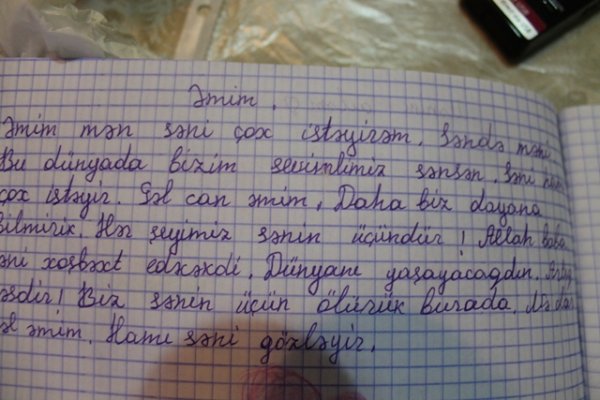 Əmim.
Əmim mən səni çox istəyirəm. Səndə məni
Bu dünyada bizim sevimlimiz sənsən. Səni
çox istəyir. Gəl can əmim. Daha biz dayana
bilmirik. Hər şeyimiz sənin üçündür! Allah baba
əni xoşbəxt edəcəkdi. Dünyanı yaşayacaqdın.
əsdir! Biz sənin üçün ölürük burada.
əl əmim. Hamı səni gözləyir.